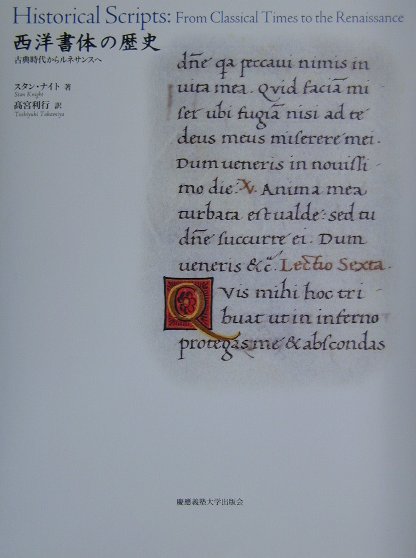 Historical Scripts: From Classical Times to the Renaissance
西洋書体の歴史
古典時代からルネサンスへ
スタン・ナイト 著
Stan Knight
髙宮利行 訳
Toshiyuki Takamiya
dn̄e q̄a peccaui nimis in
uita mea. Quid faciā mi
ſer ubi fugiā niſi ad te
deus meus miſerere mei.
Dum ueneris in nouiſſi
mo die. V. Anima mea
turbata eſt ualde: sed tu
dn̄e ſuccurre ei. Dum
ueneris &c̄. Lectio Sexta.
QVis mihi hoc tri
buat ut in inferno
protegas me & abſcondas
慶應義塾大学出版会